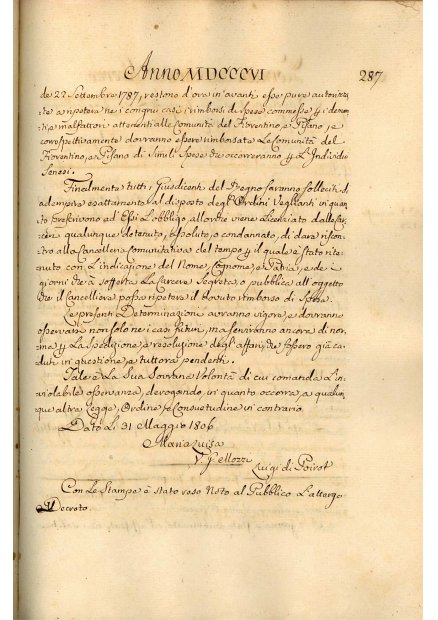 Anno MDCCCVI
287
de 22. Settembre 1787, restono d'ora in avanti esse pure autorizza-
te a ripetere ne i congrui casi i rimborsi di spese commesse p i
e malfattori attenenti alle Comunità del Fiorentino, e Pisano, e
correspettivamente dovranno essere rimborsate le Comunità del
Fiorentino, e Pisano di simili spese che occorreranno p l'Individui
Senesi.
Finalmente tutti i Giusdicenti del Regno saranno solleciti d'
adempire esattamente al disposto degl'Ordini Veglianti in quan-
to prescrivono ad Essi l'obbligo allorchè viene licenziato dalle Car-
ceri qualunque detenuto, assoluto, o condannato, di dare riscon-
tro alla Cancelleria comunitativa del tempo p il quale è stato rite-
nuto con l'indicazione del Nome, Cognome, e Patria, e de i
giorni che à sofferta la Carcere Segreta, o pubblica all'oggetto
che il Cancelliere possa ripetere il dovuto rimborso di Spese.
Le presenti Determinazioni avranno vigore, e dovranno
osservarsi non solo ne i casi futuri, ma serviranno ancora di nor-
ma p la spedizione, e resoluzione degl'affari, che fossero già ca-
duti in questione, e tuttora pendenti.
Tale è la Sua Sovrana Volontà di cui comanda l'in-
violabile osservanza, derogando, in quanto occorra, a qualun-
que altra Legge, Ordine, e Consuetudine in contrario.
Dato li 31 Maggio 1806
Maria Luisa
V. J. ellozzi
Luigi di Poirot
Con le Stampe è stato reso Noto al Pubblico l'attergo
Decreto.